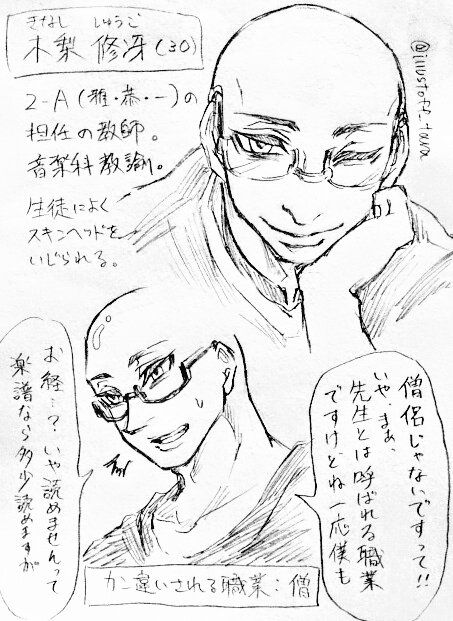 きなし しゅうご
木梨 修冴(30)
2-A(雅・恭・一)の
担任の教師。
音楽科教諭。
生徒によく
スキンヘッドを
いじられる。
僧侶じゃないですって!!
いや、まぁ、
先生とは呼ばれる職業
ですけどね一応僕も
お経…?いや読めませんって
楽譜なら多少読めますが
カン違いされる職業:僧